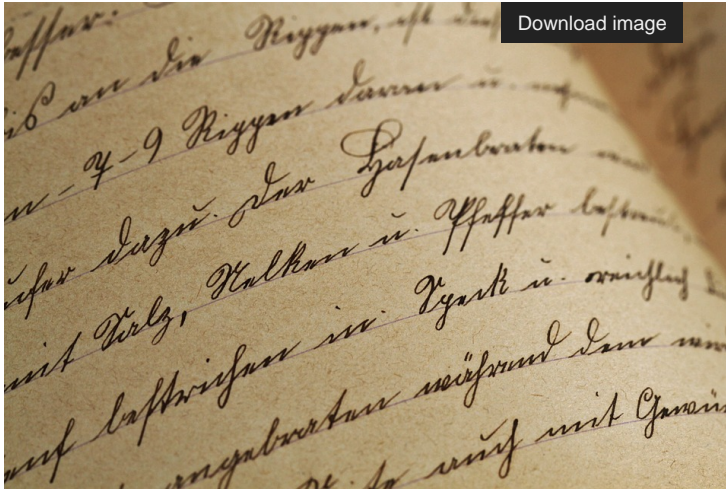 Download image
besser:
bis an die Rippen, ist
7-9 Rippen daran u.
dazu. Der Hasenbraten
mit Salz, Nelken u. Pfeffer bestreut,
bestrichen in Speck u. reichlich
angebraten während dem
auch mit Gewür